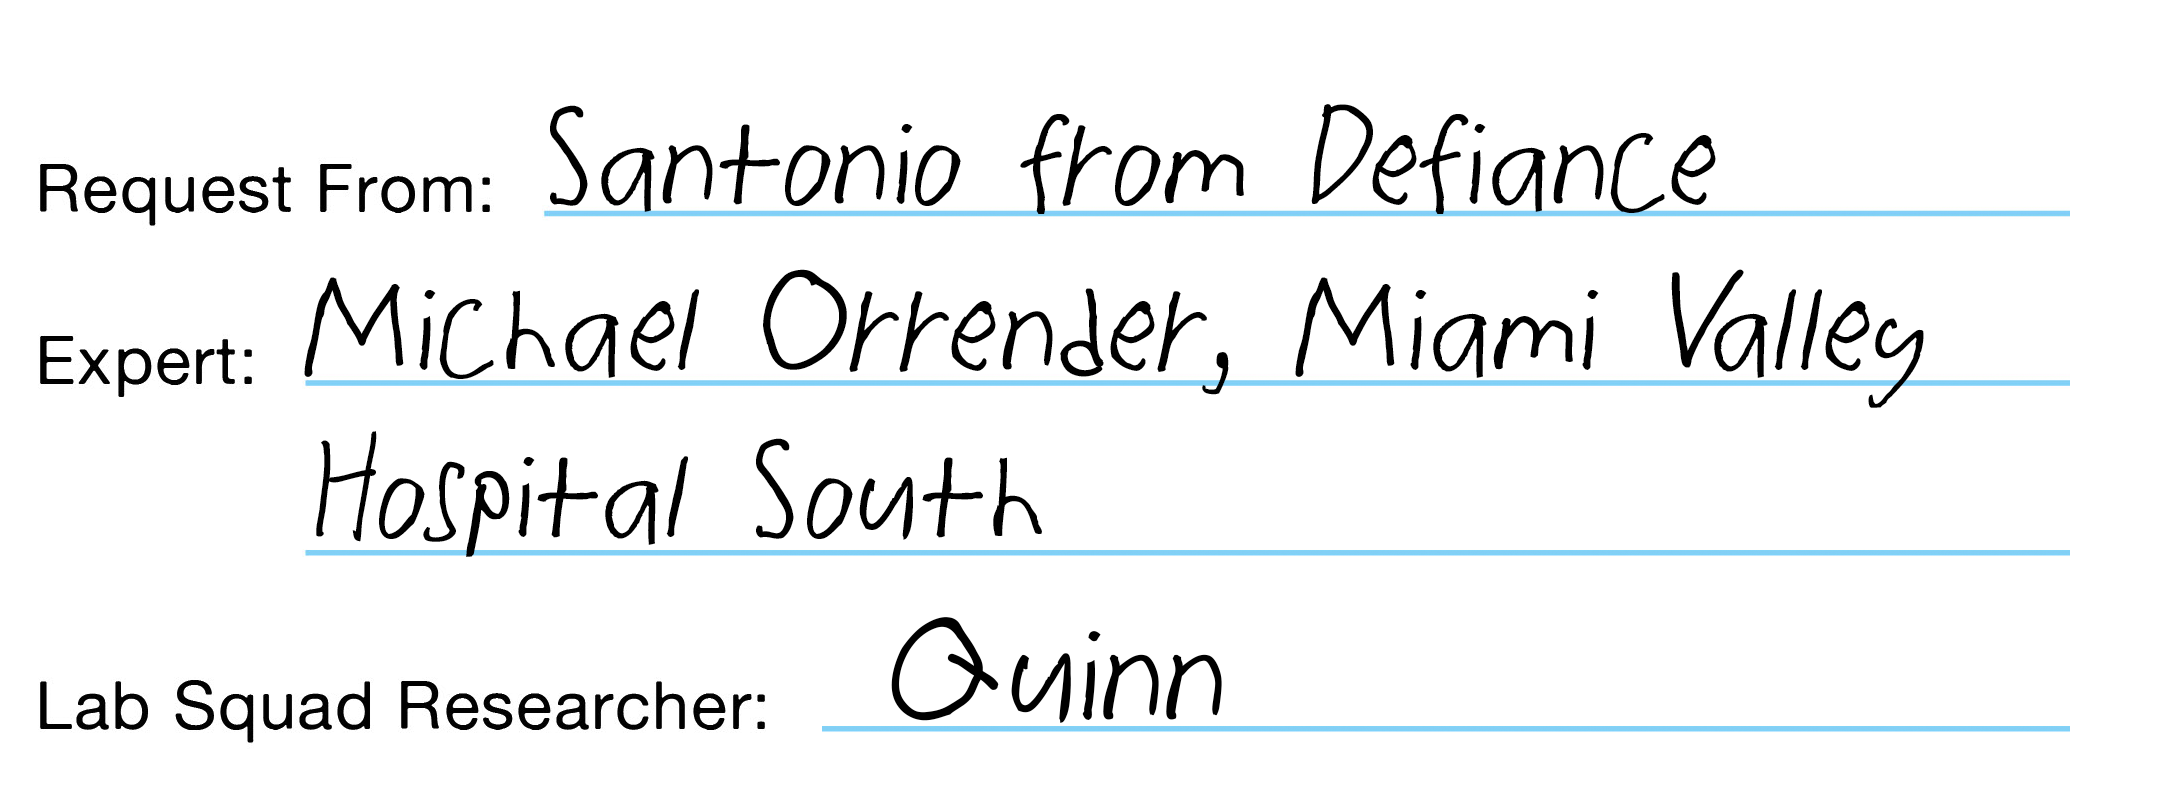 Request From: Santonio from Defiance
Expert: Michael Orrender, Miami Valley
Hospital South
Lab Squad Researcher: Quinn